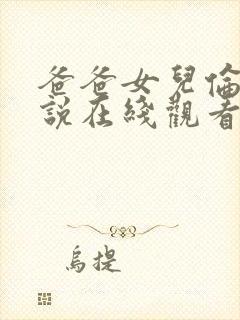 爸爸女兒倫
說在綫觀看
烏提